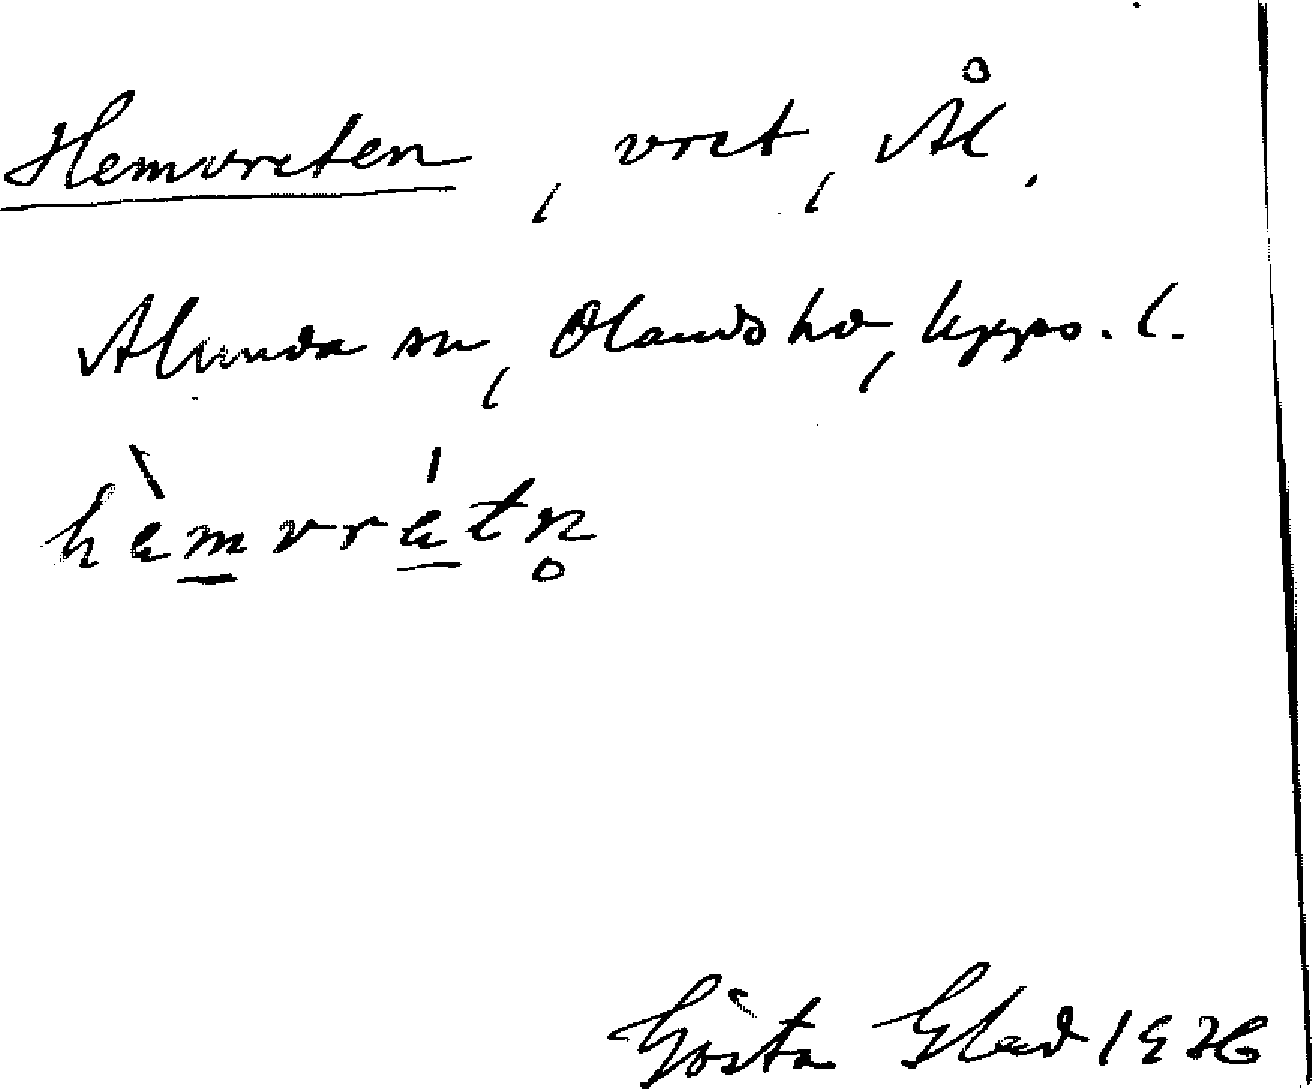 Hemvreten, vret, Ål.
Alunda sn, Olands hd, Upps. l.
hèmvrétn̥
Gösta Glad 1926